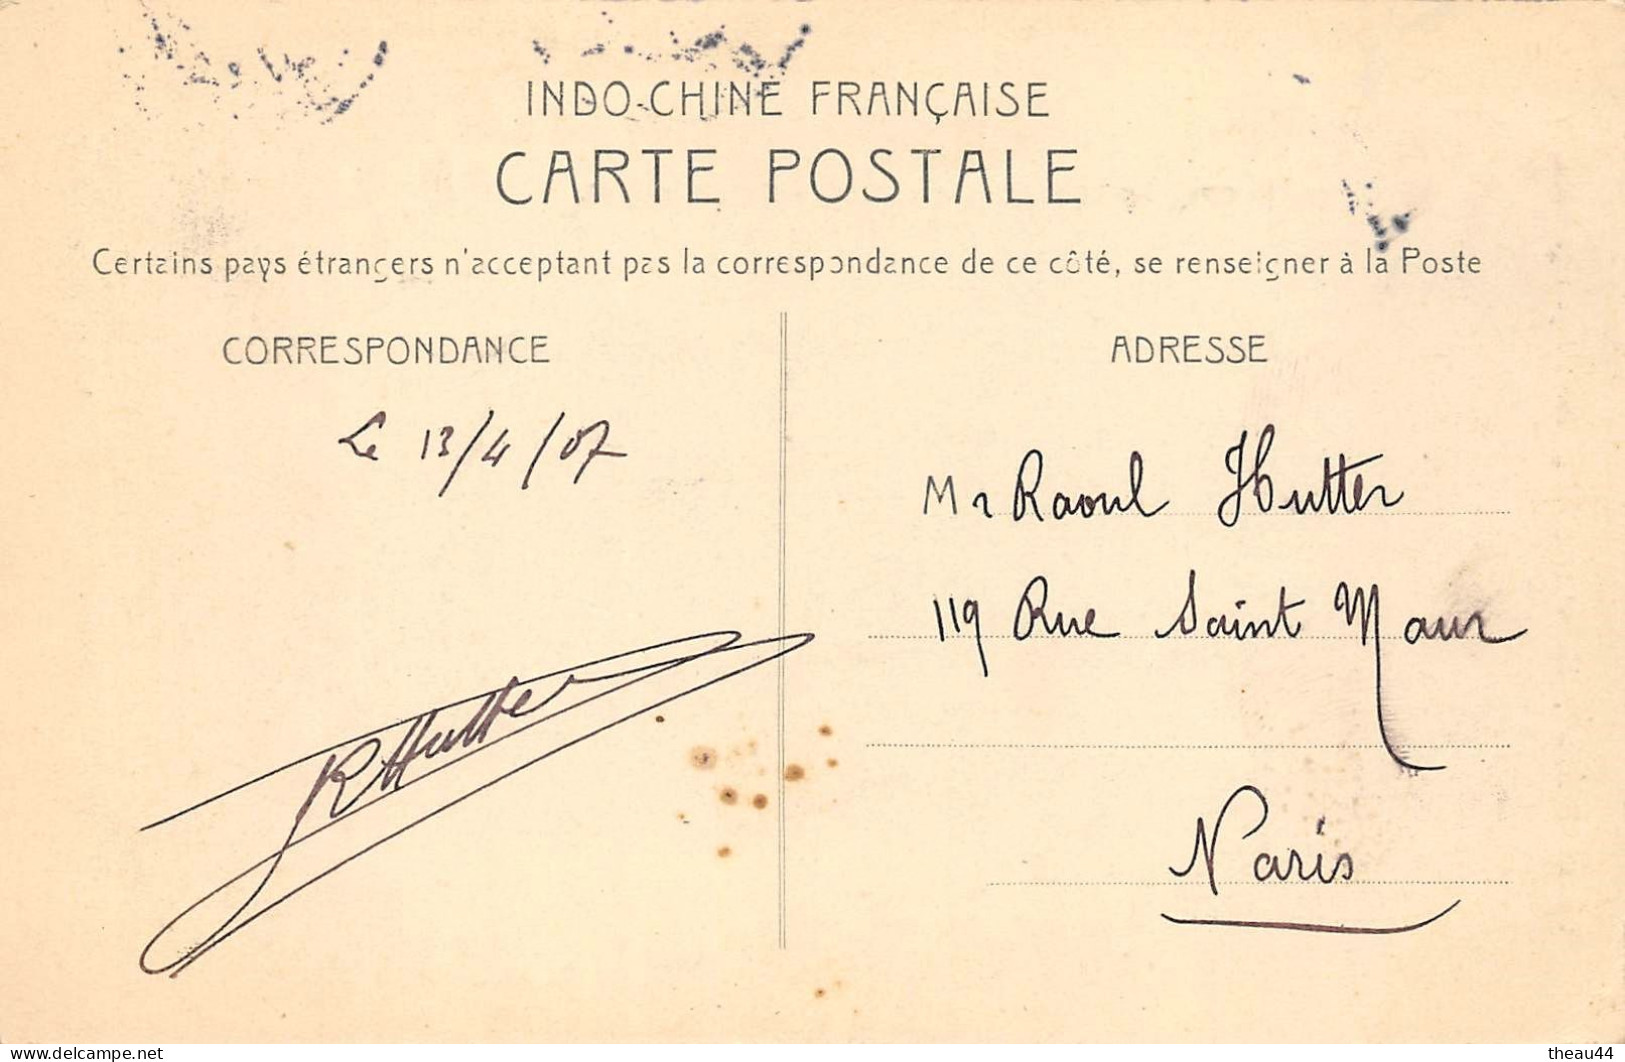 INDO-CHINE FRANÇAISE
CARTE POSTALE
Certains pays étrangers n'acceptant pas la correspondance de ce côté, se renseigner à la Poste
CORRESPONDANCE
Le 13/4/07
RHutter
ADRESSE
Mr Raoul Hutter
119 Rue Saint Maur
Paris
www.delcampe.net
theau44